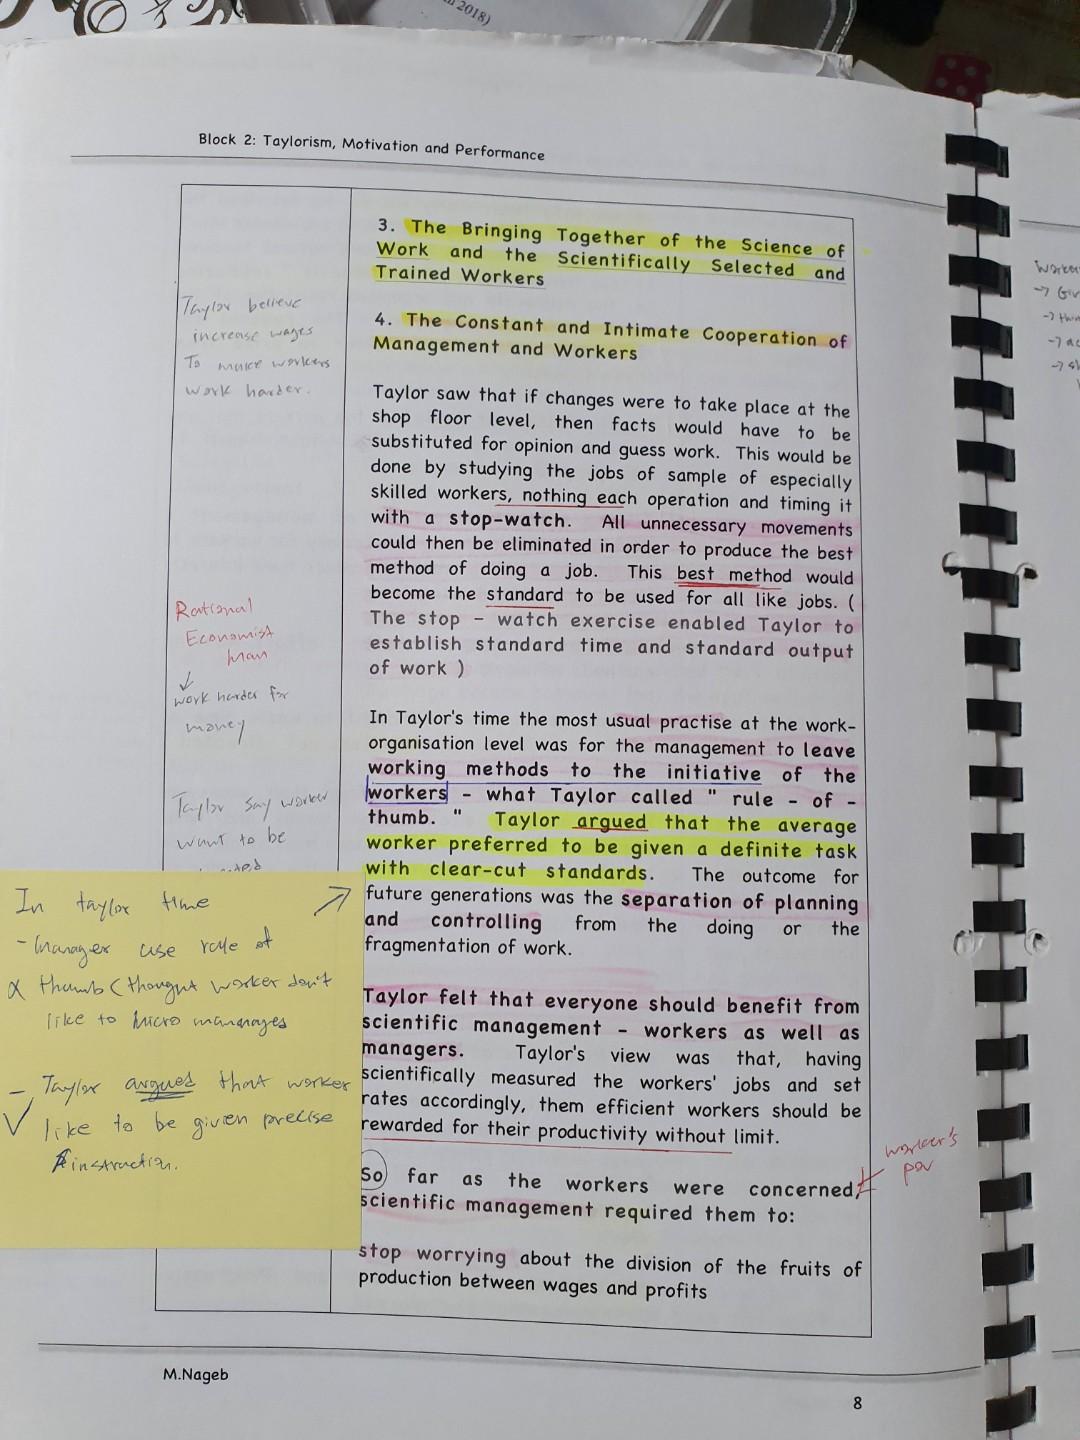 2018)
Block 2: Taylorism, Motivation and Performance
3. The Bringing Together of the Science of
Work and the Scientifically Selected and
Trained Workers
4. The Constant and Intimate Cooperation of
Management and Workers
Taylor saw that if changes were to take place at the
shop floor level, then facts would have to be
substituted for opinion and guess work. This would be
done by studying the jobs of sample of especially
skilled workers, nothing each operation and timing it
with a stop-watch. All unnecessary movements
could then be eliminated in order to produce the best
method of doing a job. This best method would
become the standard to be used for all like jobs. (
The stop - watch exercise enabled Taylor to
establish standard time and standard output
of work )
In Taylor's time the most usual practise at the work-
organisation level was for the management to leave
working methods to the initiative of the
workers - what Taylor called " rule - of -
thumb. " Taylor argued that the average
worker preferred to be given a definite task
with clear-cut standards. The outcome for
future generations was the separation of planning
and controlling from the doing or the
fragmentation of work.
Taylor felt that everyone should benefit from
scientific management - workers as well as
managers. Taylor's view was that, having
scientifically measured the workers' jobs and set
rates accordingly, them efficient workers should be
rewarded for their productivity without limit.
So far as the workers were concerned,
scientific management required them to:
stop worrying about the division of the fruits of
production between wages and profits
Taylor believe
increase wages
To make workers
work harder.
Rational
Economist
man
↓
work harder for
money
Taylor say worker
want to be
In taylor time
- manager use role of
thumb (thought worker don't
like to micro mananages
- Taylor argued that worker
like to be given precise
instruction.
worker's
pov
M.Nageb
8